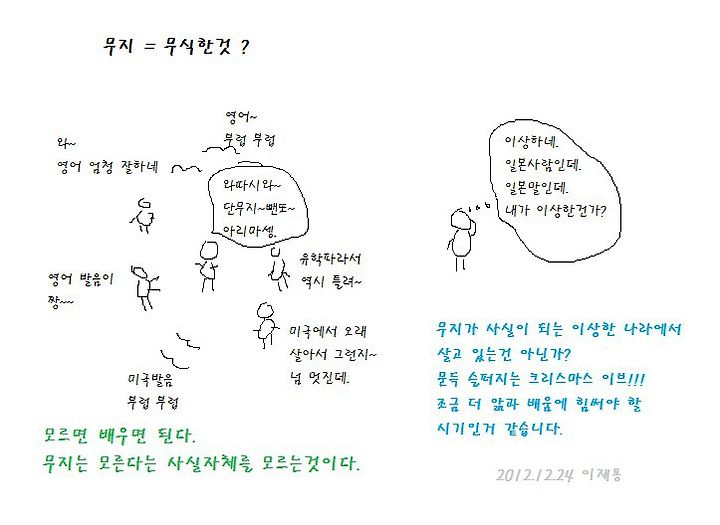 무지 = 무식한것 ?
영어~
부럽 부럽
와~
영어 엄청 잘하네
와따시와~
단무지~뺀또~
아리마셍.
유학파라서
역시 틀려~
영어 발음이
짱~~
미국에서 오래
살아서 그런지~
넘 멋진데.
미국발음
부럽 부럽
모르면 배우면 된다.
무지는 모른다는 사실자체를 모르는것이다.
이상하네.
일본사람인데.
일본말인데.
내가 이상한건가?
무지가 사실이 되는 이상한 나라에서
살고 있는건 아닌가?
문득 슬퍼지는 크리스마스 이브!!!
조금 더 앎과 배움에 힘써야 할
시기인거 같습니다.
2012.12.24 이재용